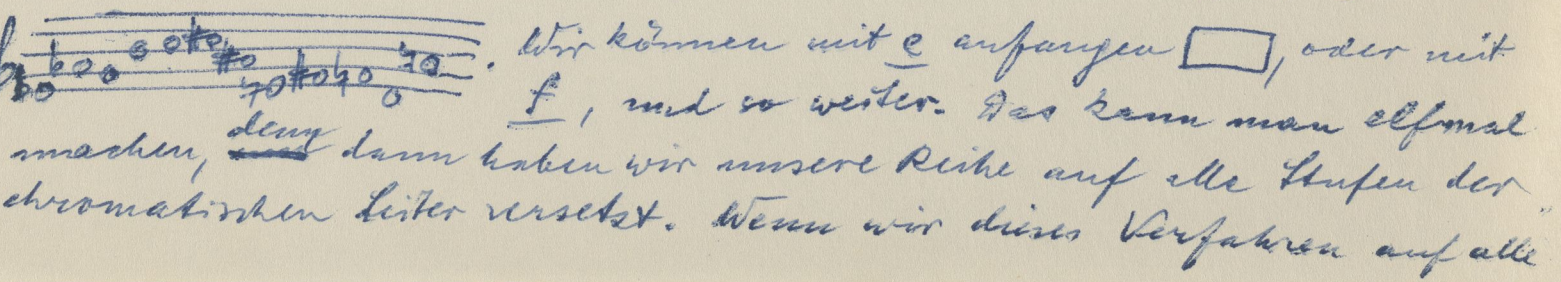 . Wir können mit e anfangen , oder mit
f , und so weiter. Das kann man elfmal
machen, denn dann haben wir unsere Reihe auf alle Stufen der
chromatischen Leiter versetzt. Wenn wir dieses Verfahren auf alle